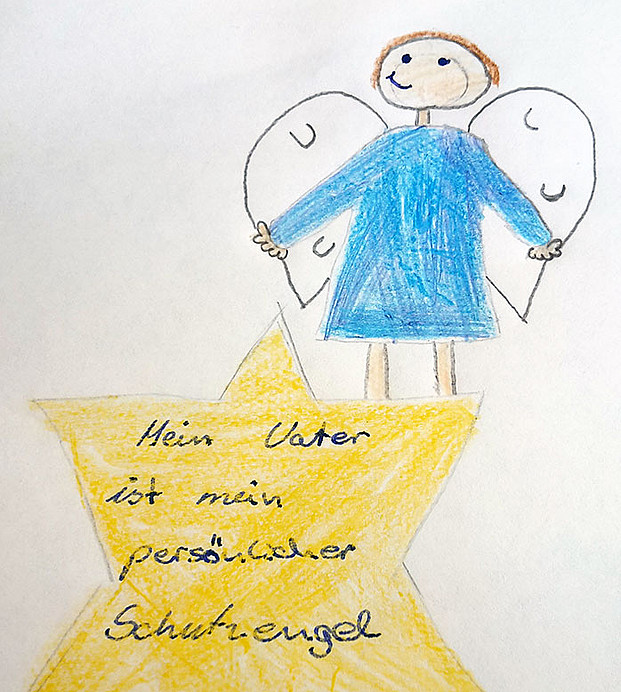 Mein Vater
ist mein
persönlicher
Schutzengel